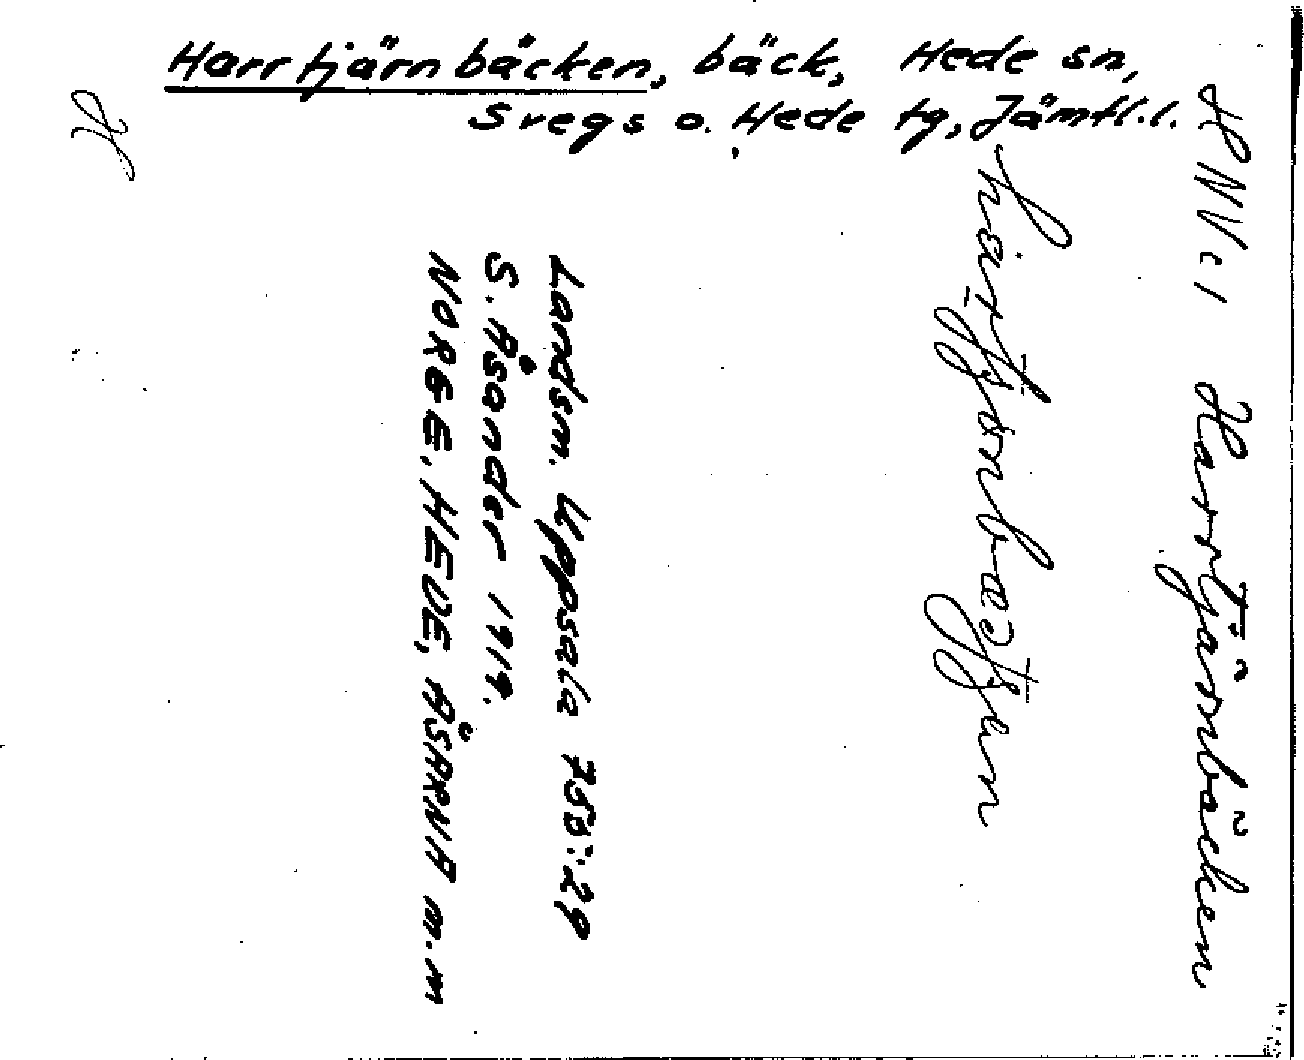 Harrtjärnbäcken, bäck, Hede sn,
Svegs o. Hede tg, Jämtl.l.
H NV:1 Harrtjärnbäcken
Landsm. Uppsala 755:29
S. Åsander 1919.
NORGE, HEDE, ÅSARNA m.m
H